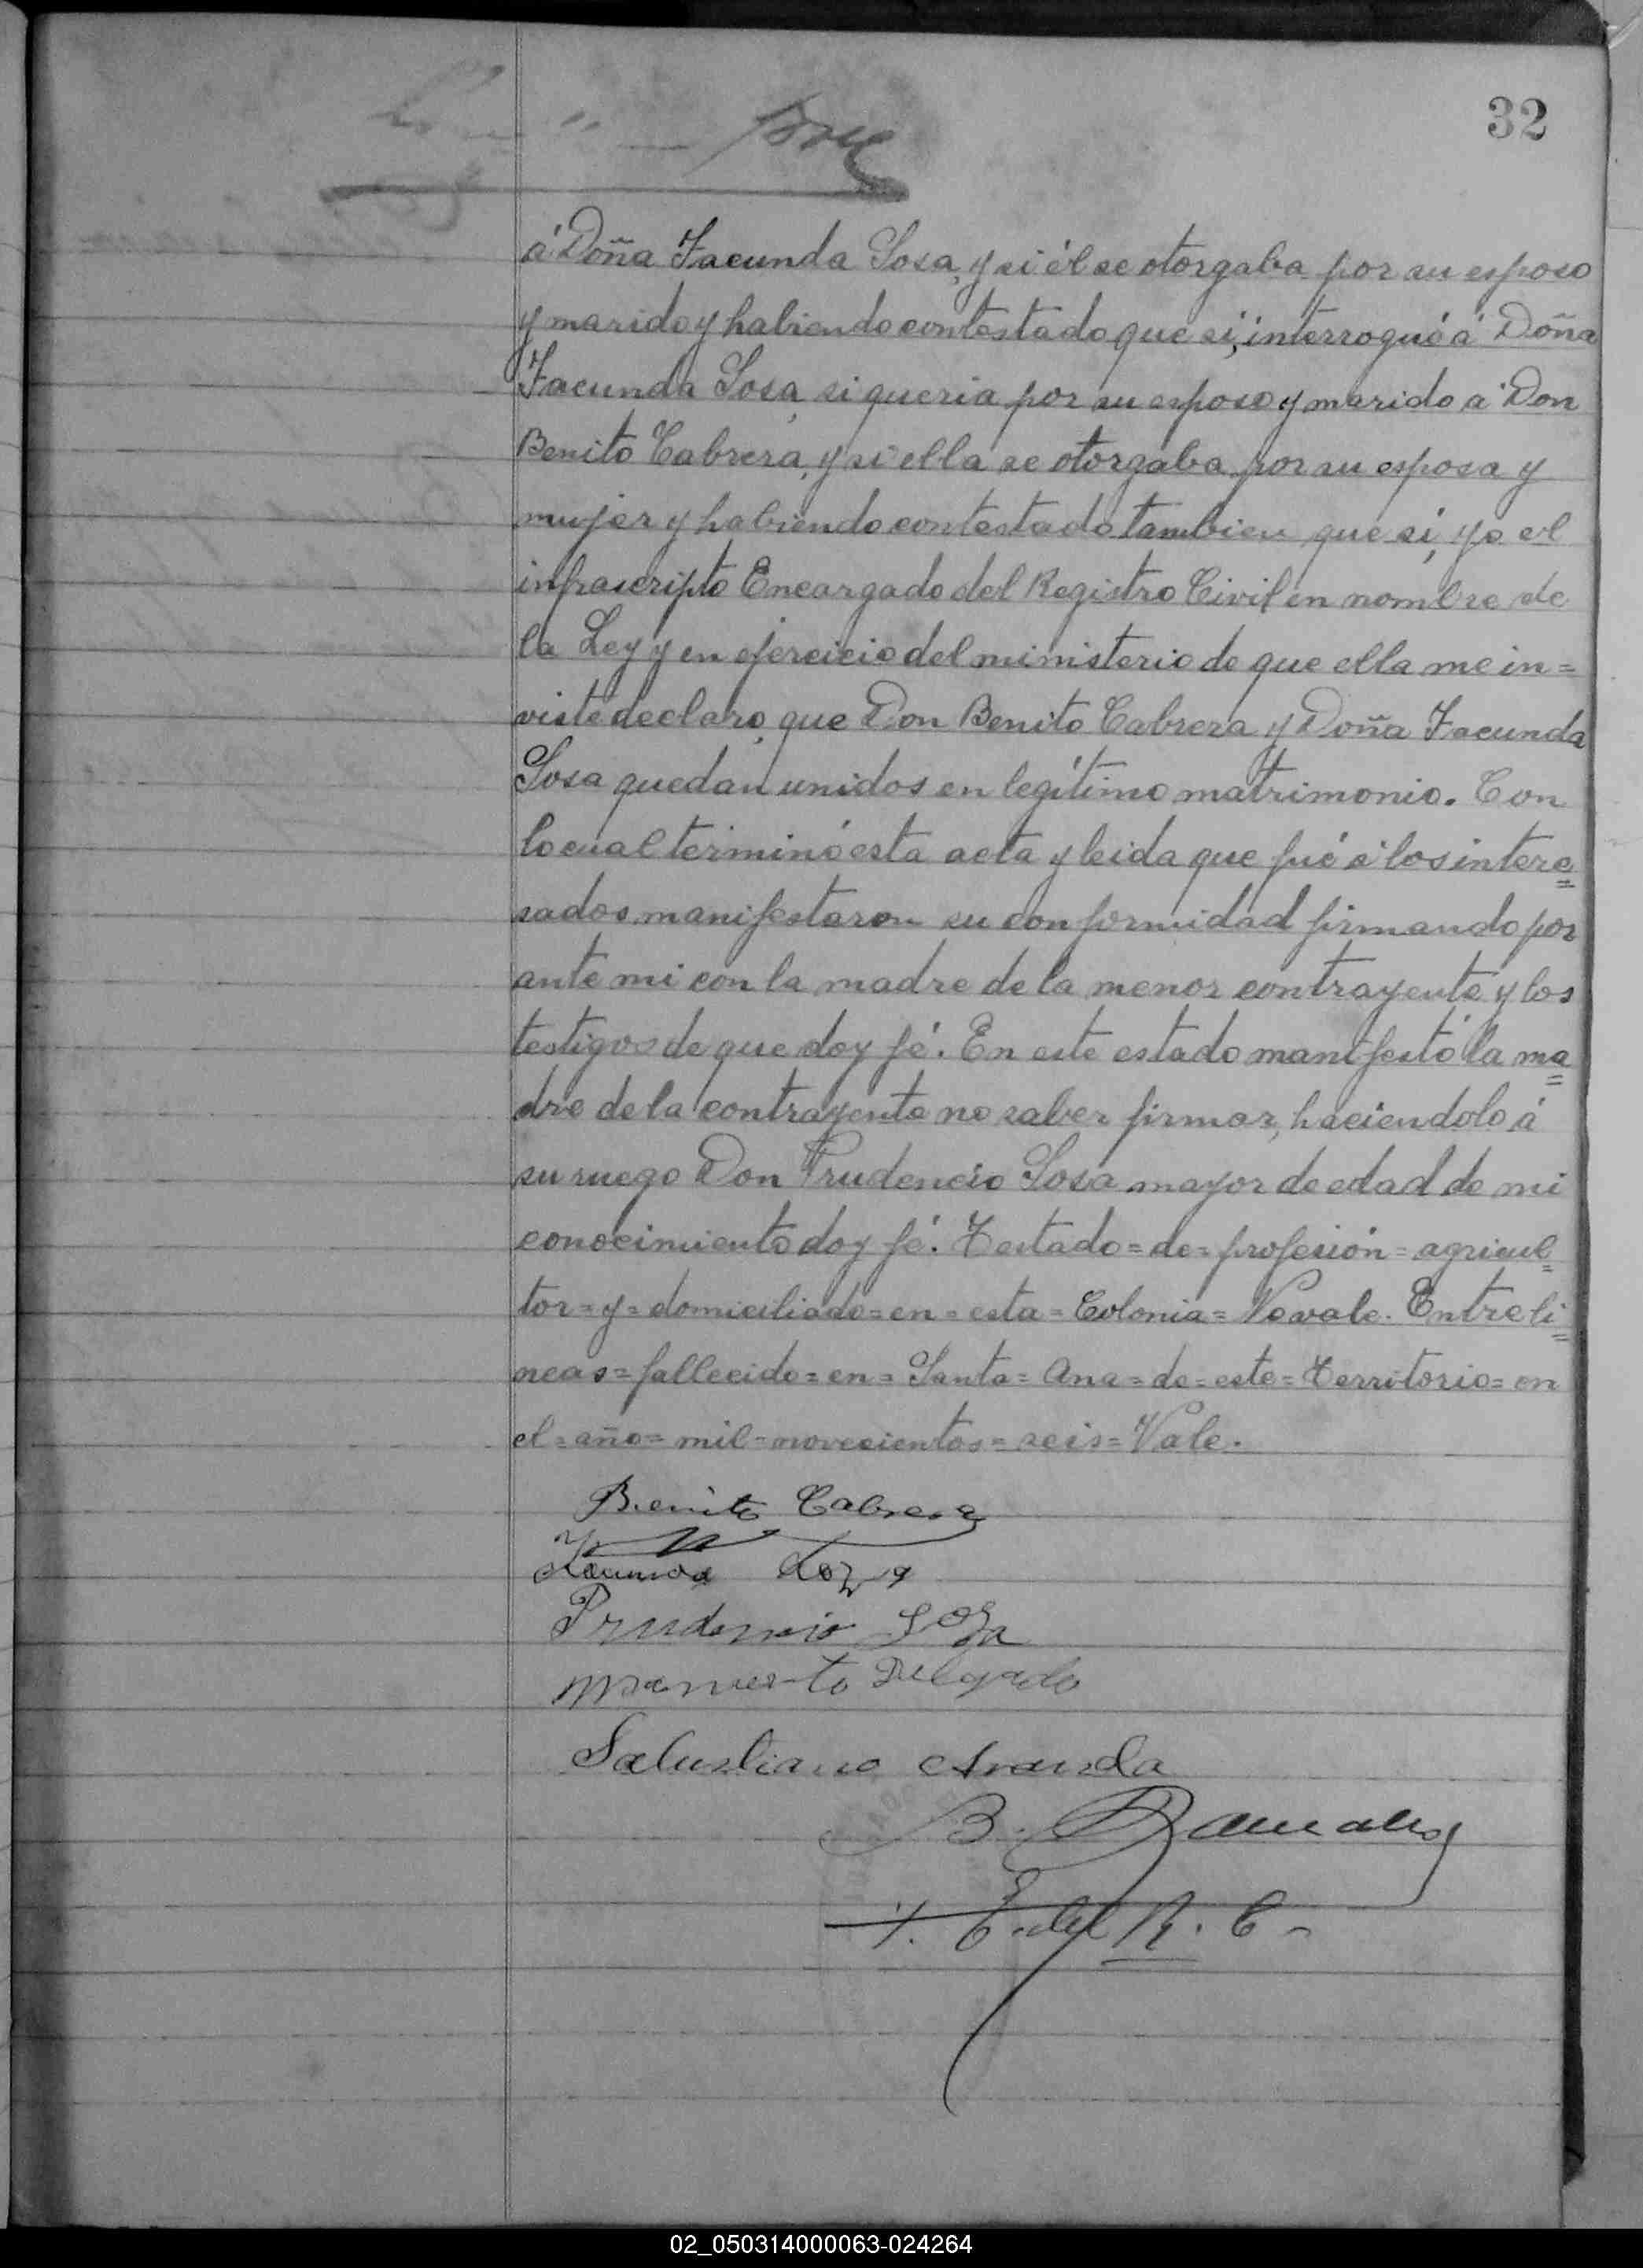 32
á Doña Facunda Sosa, y si él se otorgaba por su esposo
y marido y habiendo contestado que sí, interrogué á Doña
Facunda Sosa si queria por su esposo y marido a Don
Benito Cabrera, y si ella se otorgaba por su esposa y
mujer y habiendo contestado tambien que sí, yo el
infrascripto Encargado del Registro Civil en nombre de
la Ley y en ejercicio del ministerio de que ella me in=
viste declaro que Don Benito Cabrera y Doña Facunda
Sosa quedan unidos en legítimo matrimonio. Con
lo cual terminó esta acta y leida que fué á los intere=
sados manifestaron su conformidad firmando por
ante mi con la madre de la menor contrayente y los
testigos de que doy fé. En este estado manifestó la ma=
dre de la contrayente no saber firmar, haciendolo á
su ruego Don Prudencio Sosa mayor de edad de mi
conocimiento doy fé. Testado=de=profesión=agricul=
tor=y=domiciliado=en=esta=Colonia=No vale. Entreli=
neas=fallecido=en=Santa=Ana=de=este=Territorio=en
el=año=mil=novecientos=seis=Vale.
Benito Cabrera
Facunda Soza
Prudencio Soza
Mamerto Delgado
Salustiano Aranda
B.
E. del R. C.
02_050314000063-024264